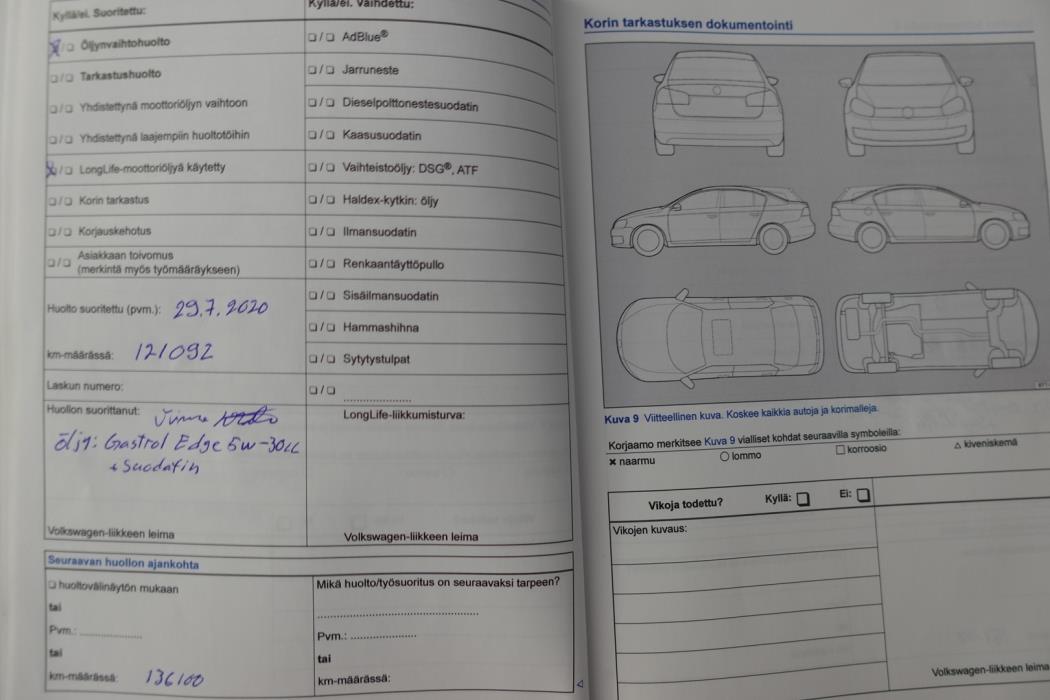 Kyllä/ei. Suoritettu:
❏ / ❏ Öljynvaihtohuolto
❏ / ❏ Tarkastushuolto
❏ / ❏ Yhdistettynä moottoriöljyn vaihtoon
❏ / ❏ Yhdistettynä laajempiin huoltotöihin
❏ / ❏ LongLife-moottoriöljyä käytetty
❏ / ❏ Korin tarkastus
❏ / ❏ Korjauskehotus
❏ / ❏ Asiakkaan toivomus
(merkintä myös työmääräykseen)
Huolto suoritettu (pvm.): 29.7.2020
km-määrässä: 121092
Laskun numero:
Huollon suorittanut:
öljy: Castrol Edge 5w-30LL
+ Suodatin
Volkswagen-liikkeen leima
Kyllä/ei. Vaihdettu:
❏ / ❏ AdBlue®
❏ / ❏ Jarruneste
❏ / ❏ Dieselpolttonestesuodatin
❏ / ❏ Kaasusuodatin
❏ / ❏ Vaihteistoöljy: DSG®, ATF
❏ / ❏ Haldex-kytkin: öljy
❏ / ❏ Ilmansuodatin
❏ / ❏ Renkaantäyttöpullo
❏ / ❏ Sisäilmansuodatin
❏ / ❏ Hammashihna
❏ / ❏ Sytytystulpat
❏ / ❏ ......................
LongLife-liikkumisturva:
Volkswagen-liikkeen leima
Seuraavan huollon ajankohta
❏ huoltovälinäytön mukaan
tai
Pvm.: ..................
tai
km-määrässä: 136100
Mikä huolto/työsuoritus on seuraavaksi tarpeen?
..............................................
Pvm.: ....................
tai
km-määrässä:
Korin tarkastuksen dokumentointi
Kuva 9 Viitteellinen kuva. Koskee kaikkia autoja ja korimalleja.
Korjaamo merkitsee Kuva 9 vialliset kohdat seuraavilla symboleilla:
✖ naarmu ○ lommo □ korroosio △ kiveniskemä
Vikoja todettu? Kyllä: ❏ Ei: ❏
Vikojen kuvaus:
Volkswagen-liikkeen leima